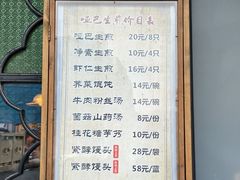 哑巴生煎价目表
哑巴生煎 20元/8只
净素生煎 10元/4只
虾仁生煎 16元/4只
荠菜馄饨 14元/碗
牛肉粉丝汤 14元/碗
菌菇山药汤 8元/份
桂花糖芋艿 10元/份
紫酵馒头 28元/蒸
紫酵馒头 58元/蒸